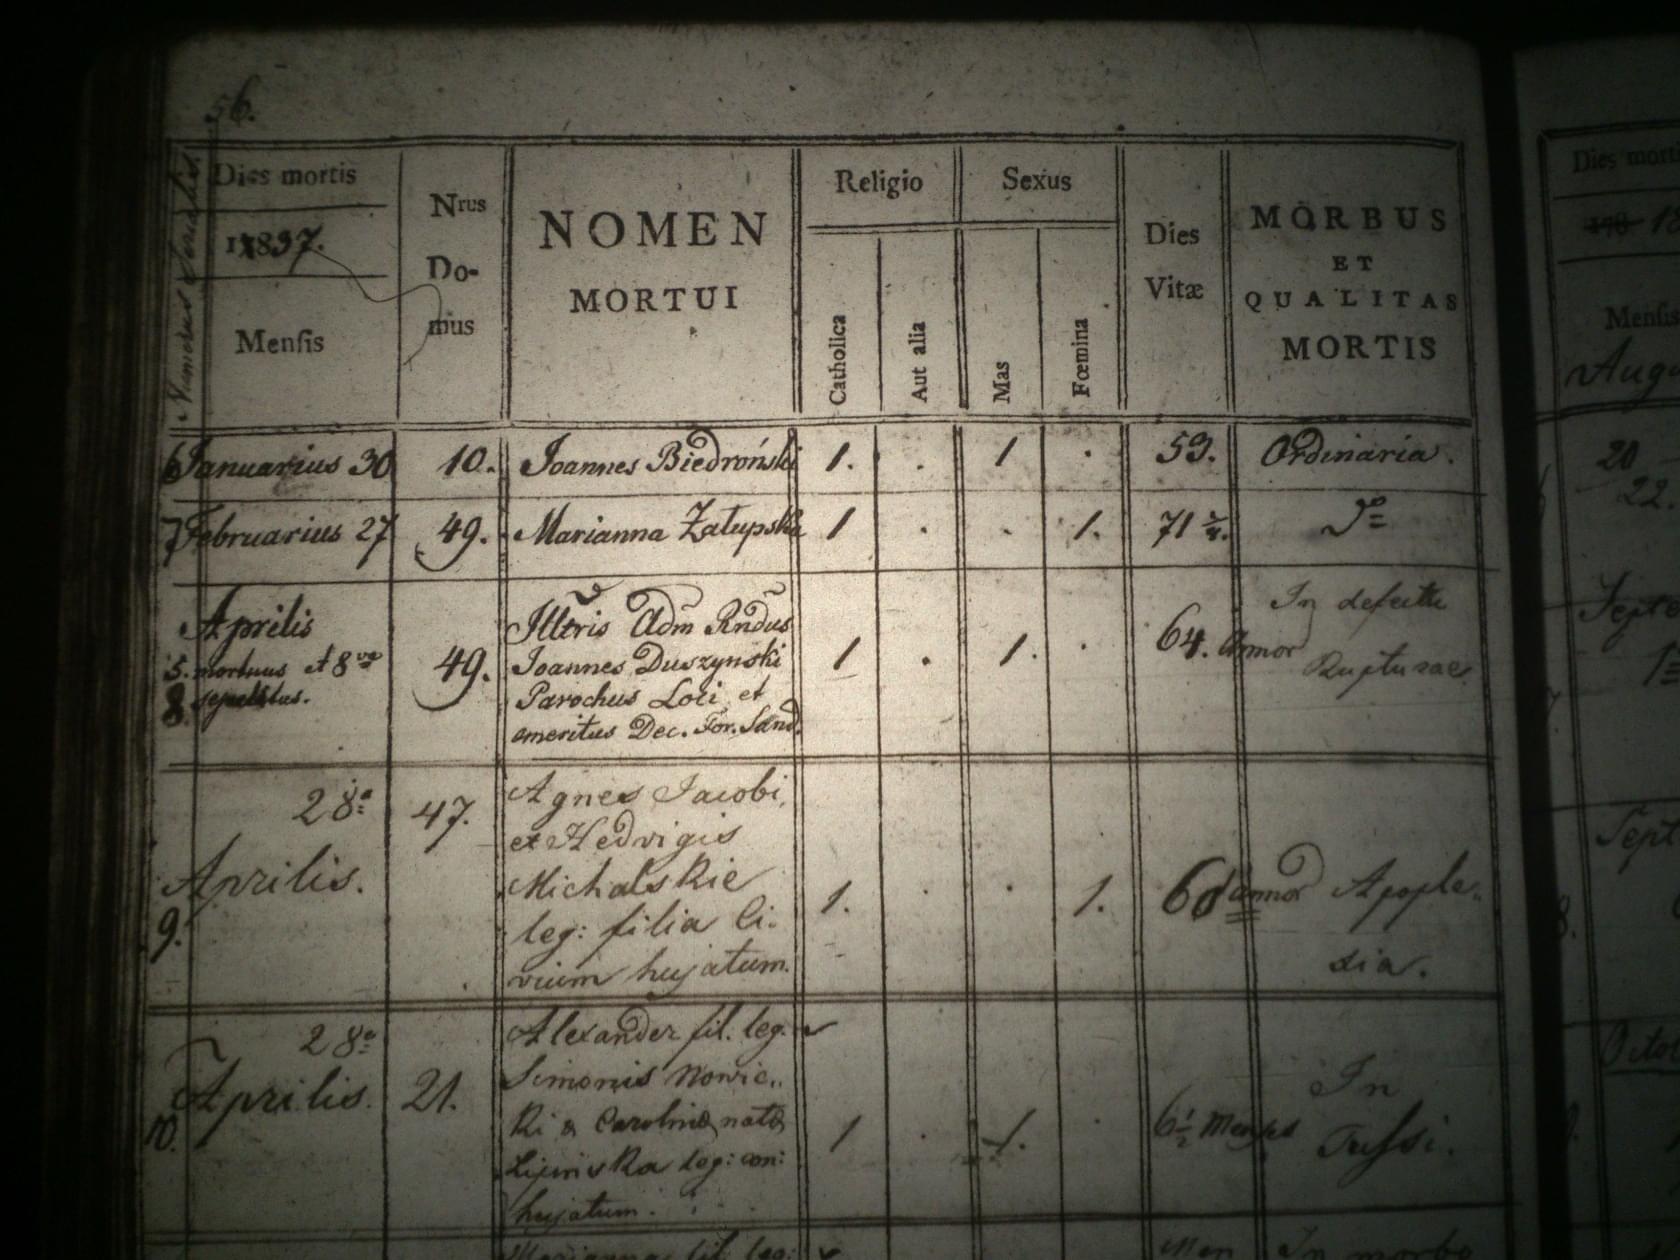 56.
Numerus Serialis.
Dies mortis
1837.
Mensis
Nrus
Do-
mus
NOMEN
MORTUI
Religio
Catholica
Aut alia
Sexus
Mas
Fœmina
Dies
Vitæ
MORBUS
ET
QUALITAS
MORTIS
6 Januarius 30 10. Joannes Biedroński 1. . 1 . 53. Ordinaria.
7 Februarius 27 49. Marianna Załupska 1 . . 1. 71
Aprilis
5. mortuus et 8va
8. sepultus.
49.
Illtris Adm Rndus
Joannes Duszynski
Parochus Loci et
emeritus Dec. For. Sand.
1 . 1. . 64. Annor
In defectu
Rupturae
28a
Aprilis.
9.
47.
Agnes Jacobi,
et Hedvigis
Michalskie
leg: filia Ci-
vium hujatum.
1. . . 1. annor Apople-
xia.
28a
Aprilis.
10.
21.
Alexander fil. leg.
Simonis Nowic-
ki & Carolinæ natæ
Lipinska leg: con:
hujatum.
1 . 1. . 6 1/2 Menses
In
Tussi.
Marianna fil. leg:
Men
In morbo
Dies morti
178 18
Mensis
Augu
20
22.
Sept
Sept
8.
Octo